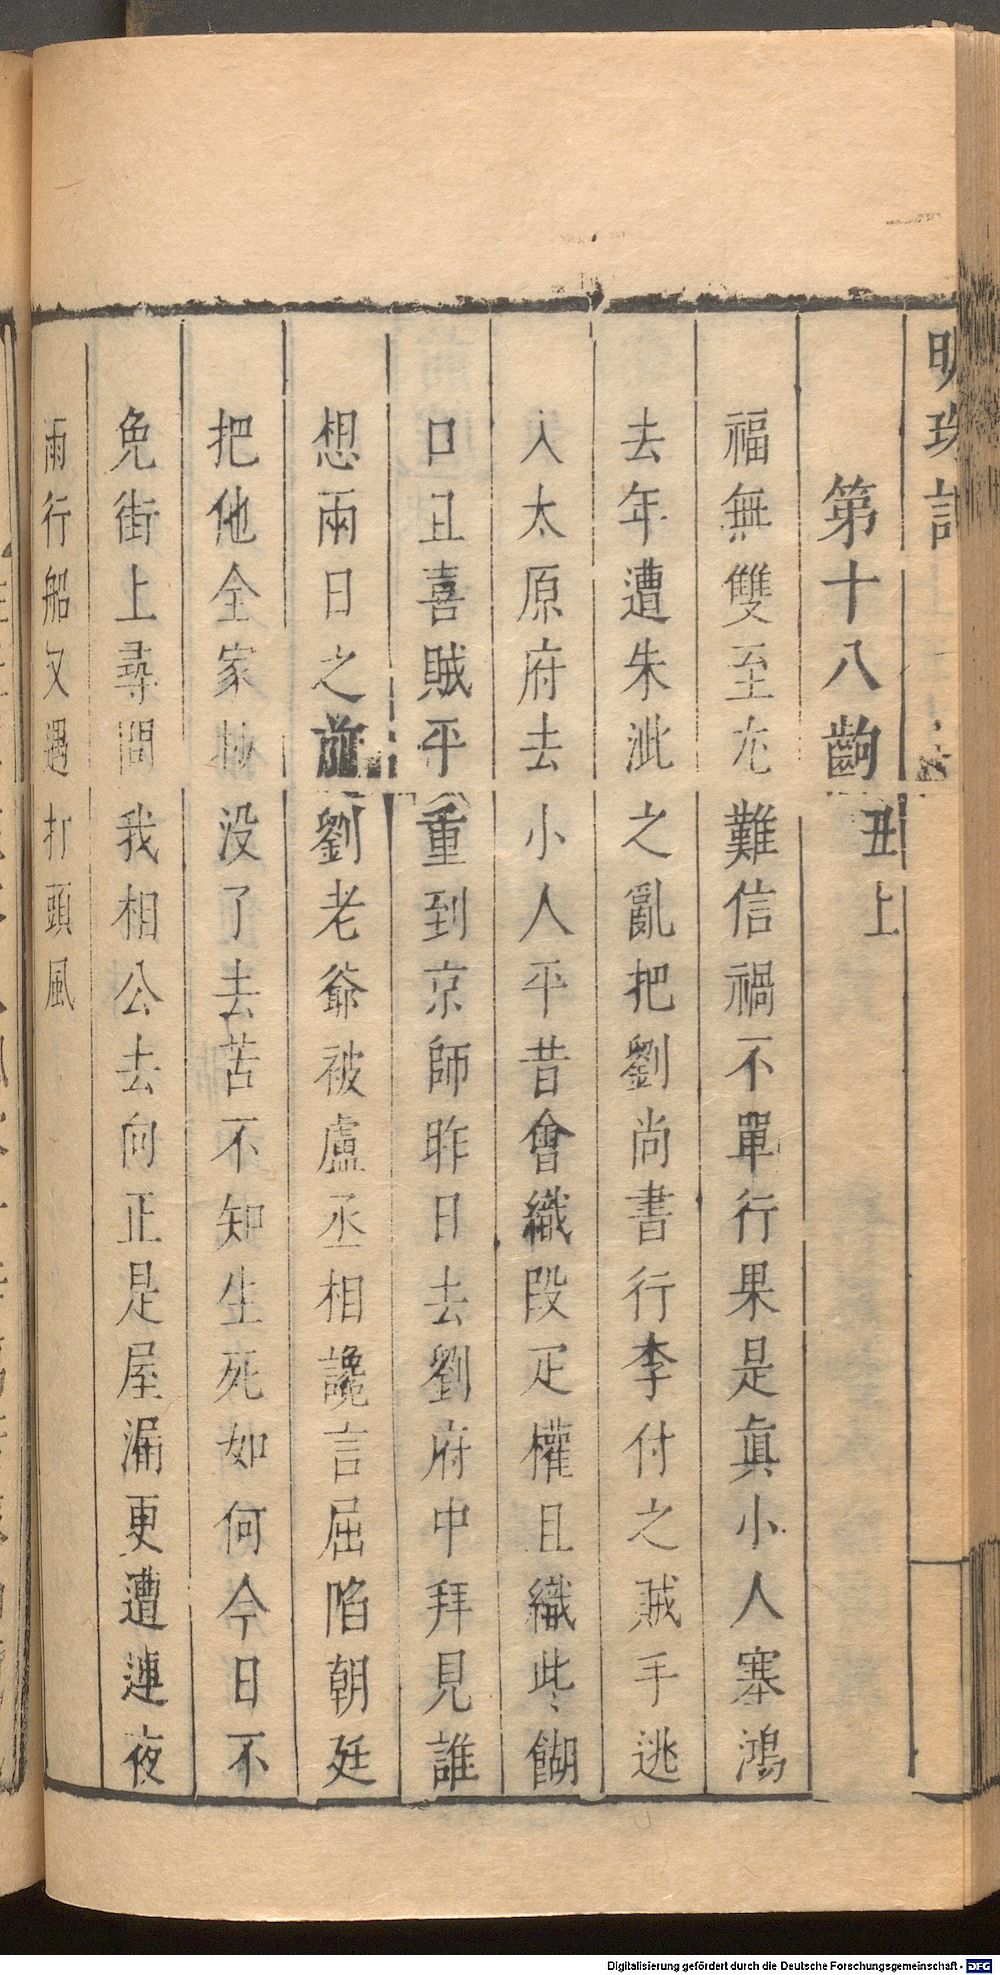 明珠記
第十八齣 丑上
福無雙至尤難信禍不單行果是眞小人塞鴻
去年遭朱泚之亂把劉尚書行李付之賊手逃
入太原府去小人平昔會織段疋權且織此餬
口且喜賊平重到京師昨日去劉府中拜見誰
想兩日之前劉老爺被盧丞相讒言屈陷朝廷
把他全家抄没了去苦不知生死如何今日不
免街上尋問我相公去向正是屋漏更遭連夜
雨行船又遇打頭風
Digitalisierung gefördert durch die Deutsche Forschungsgemeinschaft - DFG